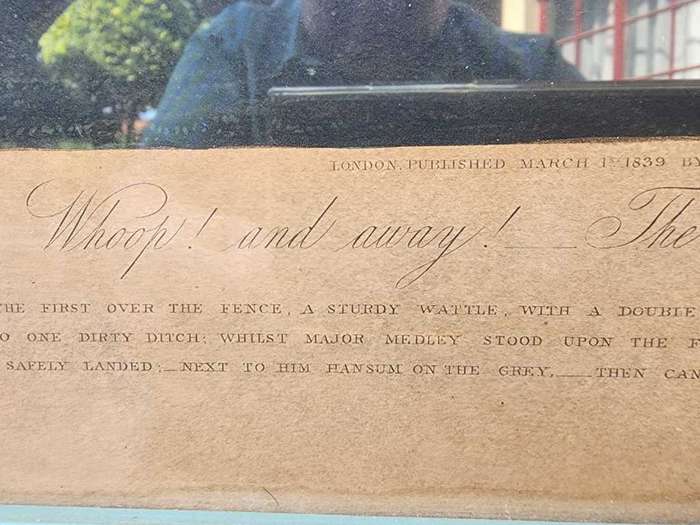 LONDON, PUBLISHED MARCH 1st 1839 BY
Whoop! and away! — The
THE FIRST OVER THE FENCE, A STURDY WATTLE, WITH A DOUBLE
O ONE DIRTY DITCH; WHILST MAJOR MEDLEY STOOD UPON THE F
SAFELY LANDED;—NEXT TO HIM HANSUM ON THE GREY,—THEN CAN